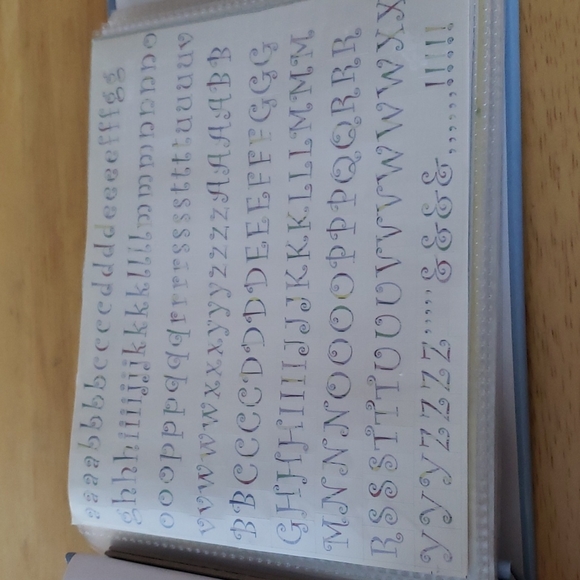 aaaabbbbccccddddeeeefffgg
ghhhiiiijjjjkkkklllmmmmnnnno
ooopppqqqrrrrsssstttttuuuuv
vvwwwxxxyyyzzzzAAAABB
BBCCCCDDDDEEEEFFFGGG
GHHHIIIIJJJKKKLLLMMM
MNNNNOOOOPPPQQRRR
RSSSTTTUUUUVVVVWWWXX
YYYZZZZ,,,,,&&&&,,,,,,,!!!!!